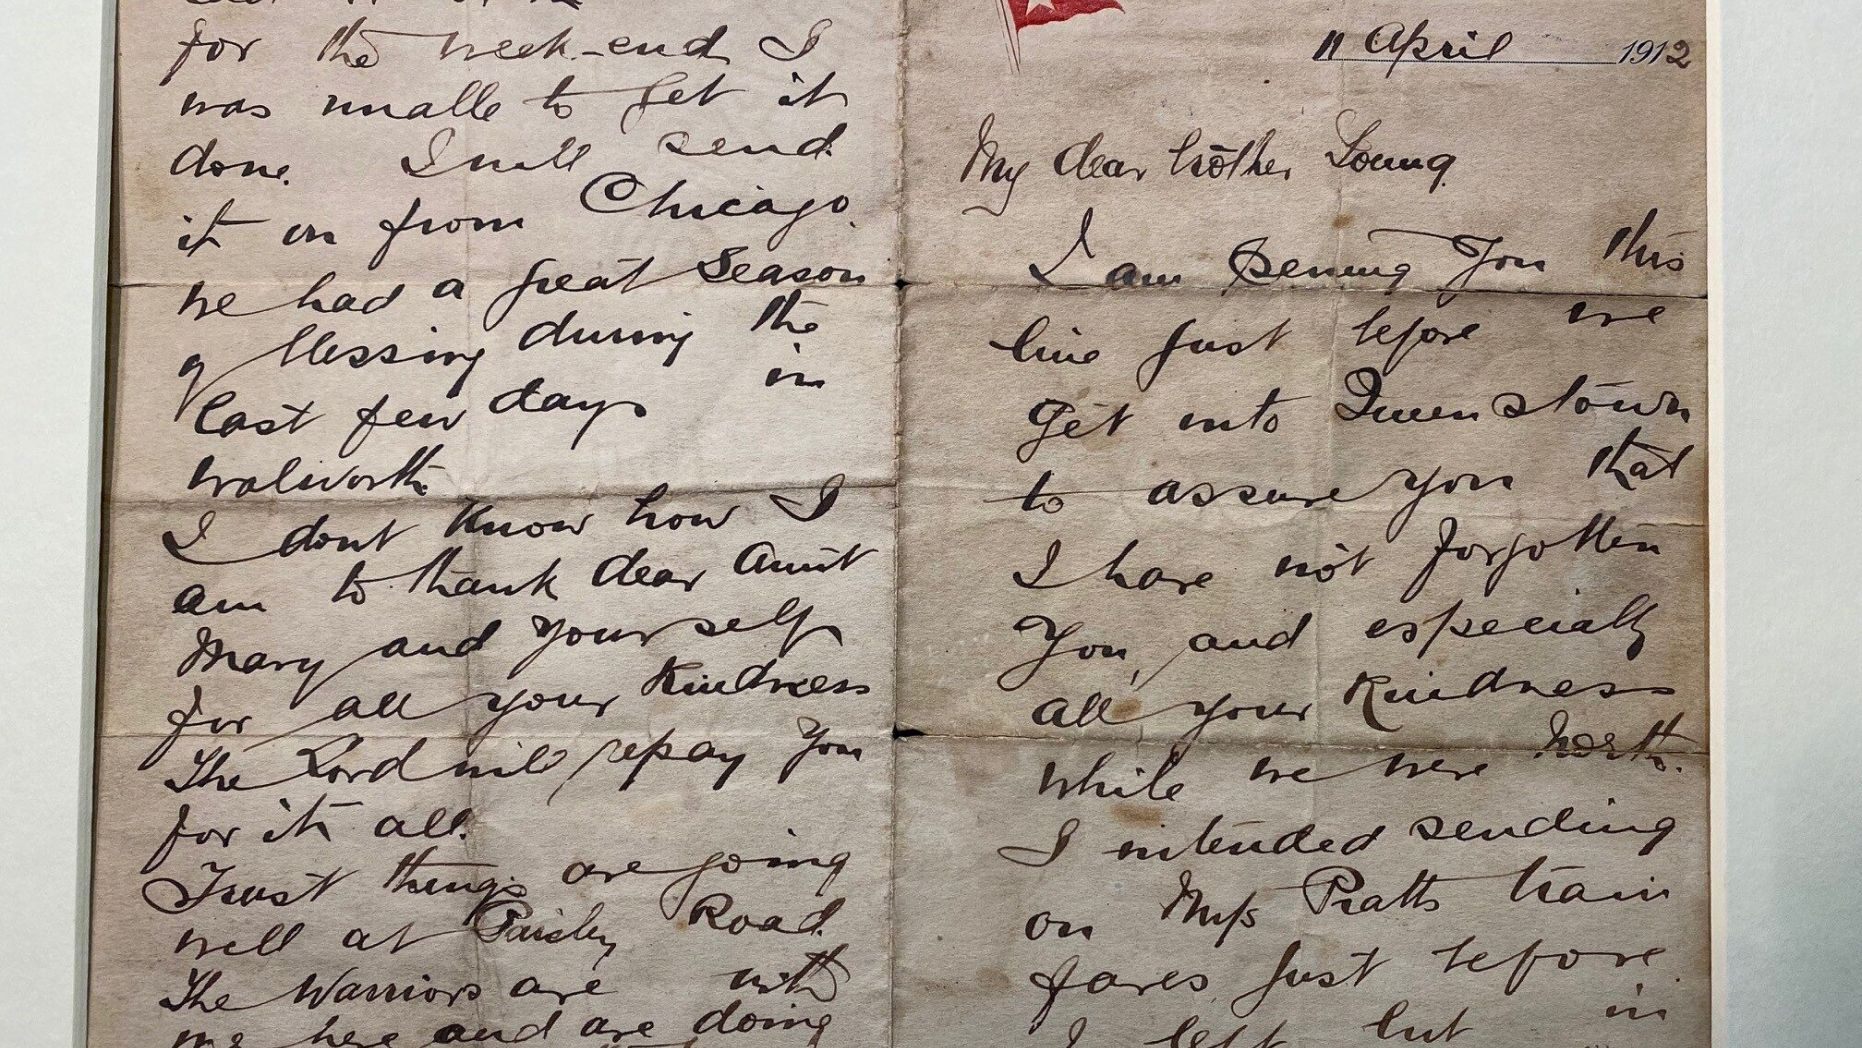 11 April 1912
My dear brother Young.
I am pening you this
line just before we
get into Queenstown
to assure you that
I have not forgotten
you, and especially
all your Kindness
while we were North.
I intended sending
on Miss Pratts train
fares just before
I left but in
for the week-end I
was unable to get it
done. I will send
it on from Chicago.
we had a great Season
of blessing during the
last few days in
walworth.
I dont know how I
am to thank dear Aunt
Mary and yourself
for all your Kindness
The Lord will repay you
for it all.
Trust things are going
well at Paisley Road.
The Warriors are with
me here and are doing